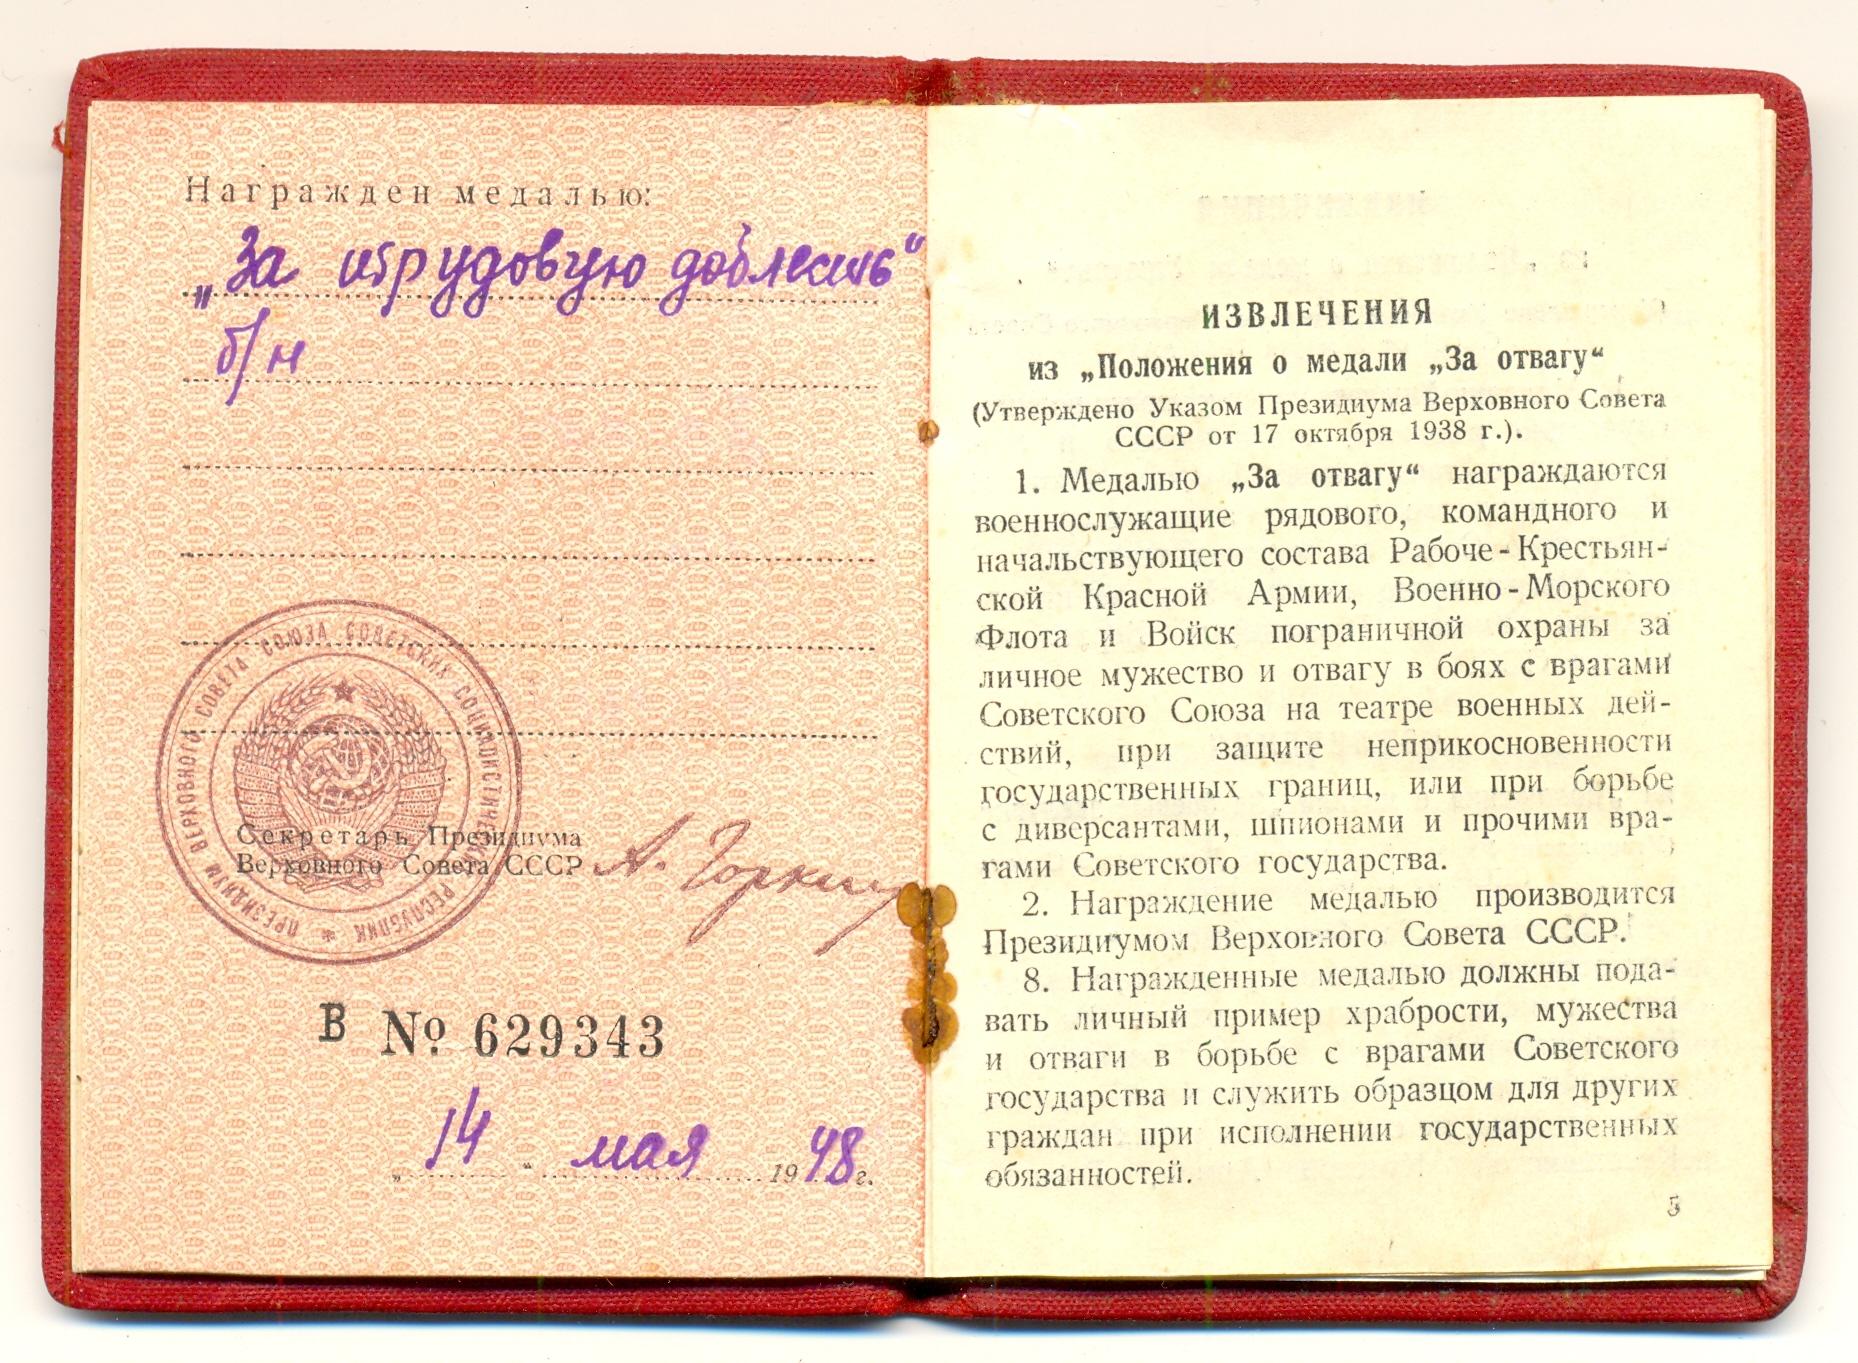 Награжден медалью:
„За трудовую доблесть“
б/н
ПРЕЗИДИУМ ВЕРХОВНОГО СОВЕТА СОЮЗА СОВЕТСКИХ СОЦИАЛИСТИЧЕСКИХ РЕСПУБЛИК *
Секретарь Президиума
Верховного Совета СССР А. Горкин
В № 629343
„14“ мая 1948 г.
ИЗВЛЕЧЕНИЯ
из „Положения о медали „За отвагу“
(Утверждено Указом Президиума Верховного Совета
СССР от 17 октября 1938 г.).
1. Медалью „За отвагу“ награждаются
военнослужащие рядового, командного и
начальствующего состава Рабоче-Крестьян-
ской Красной Армии, Военно-Морского
Флота и Войск пограничной охраны за
личное мужество и отвагу в боях с врагами
Советского Союза на театре военных дей-
ствий, при защите неприкосновенности
государственных границ, или при борьбе
с диверсантами, шпионами и прочими вра-
гами Советского государства.
2. Награждение медалью производится
Президиумом Верховного Совета СССР.
8. Награжденные медалью должны пода-
вать личный пример храбрости, мужества
и отваги в борьбе с врагами Советского
государства и служить образцом для других
граждан при исполнении государственных
обязанностей.
5